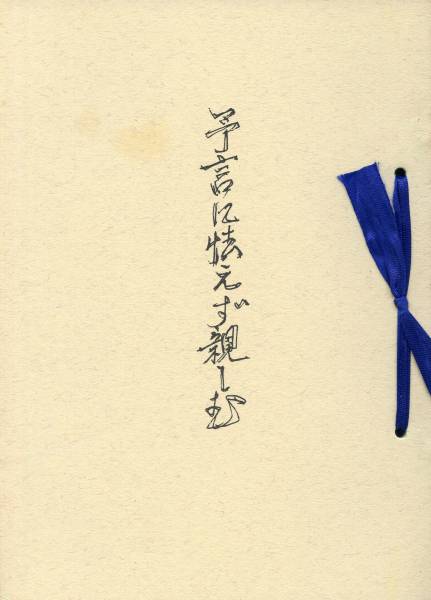 予言に怯えず親しむ